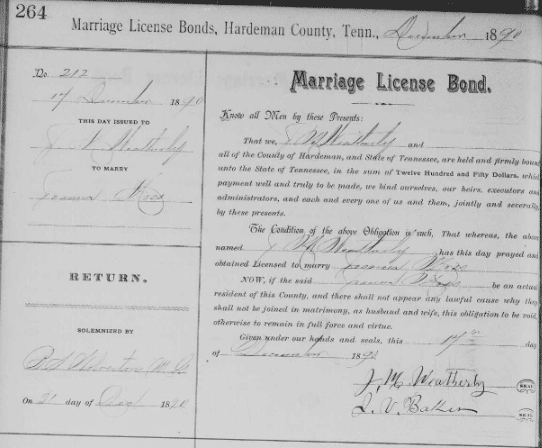 264
Marriage License Bonds, Hardeman County, Tenn., December 1890
No. 212
17 December 1890
THIS DAY ISSUED TO
J Weatherly
TO MARRY
RETURN.
SOLEMNIZED BY
On 21 day of Dec 1890
Marriage License Bond.
Know all Men by these Presents:
That we, J M Weatherly and
all of the County of Hardeman, and State of Tennessee, are held and firmly bound
unto the State of Tennessee, in the sum of Twelve Hundred and Fifty Dollars, which
payment well and truly to be made, we bind ourselves, our heirs, executors and
administrators, and each and every one of us and them, jointly and severally
by these presents.
The Condition of the above Obligation is such, That whereas, the above
named J M Weatherly has this day prayed and
obtained Licensed to marry
NOW, if the said be an actual
resident of this County, and there shall not appear any lawful cause why they
shall not be joined in matrimony, as husband and wife, this obligation to be void,
otherwise to remain in full force and virtue.
Given under our hands and seals, this 17th day
of December 1890
J. M. Weatherly SEAL
J. V. Baker SEAL